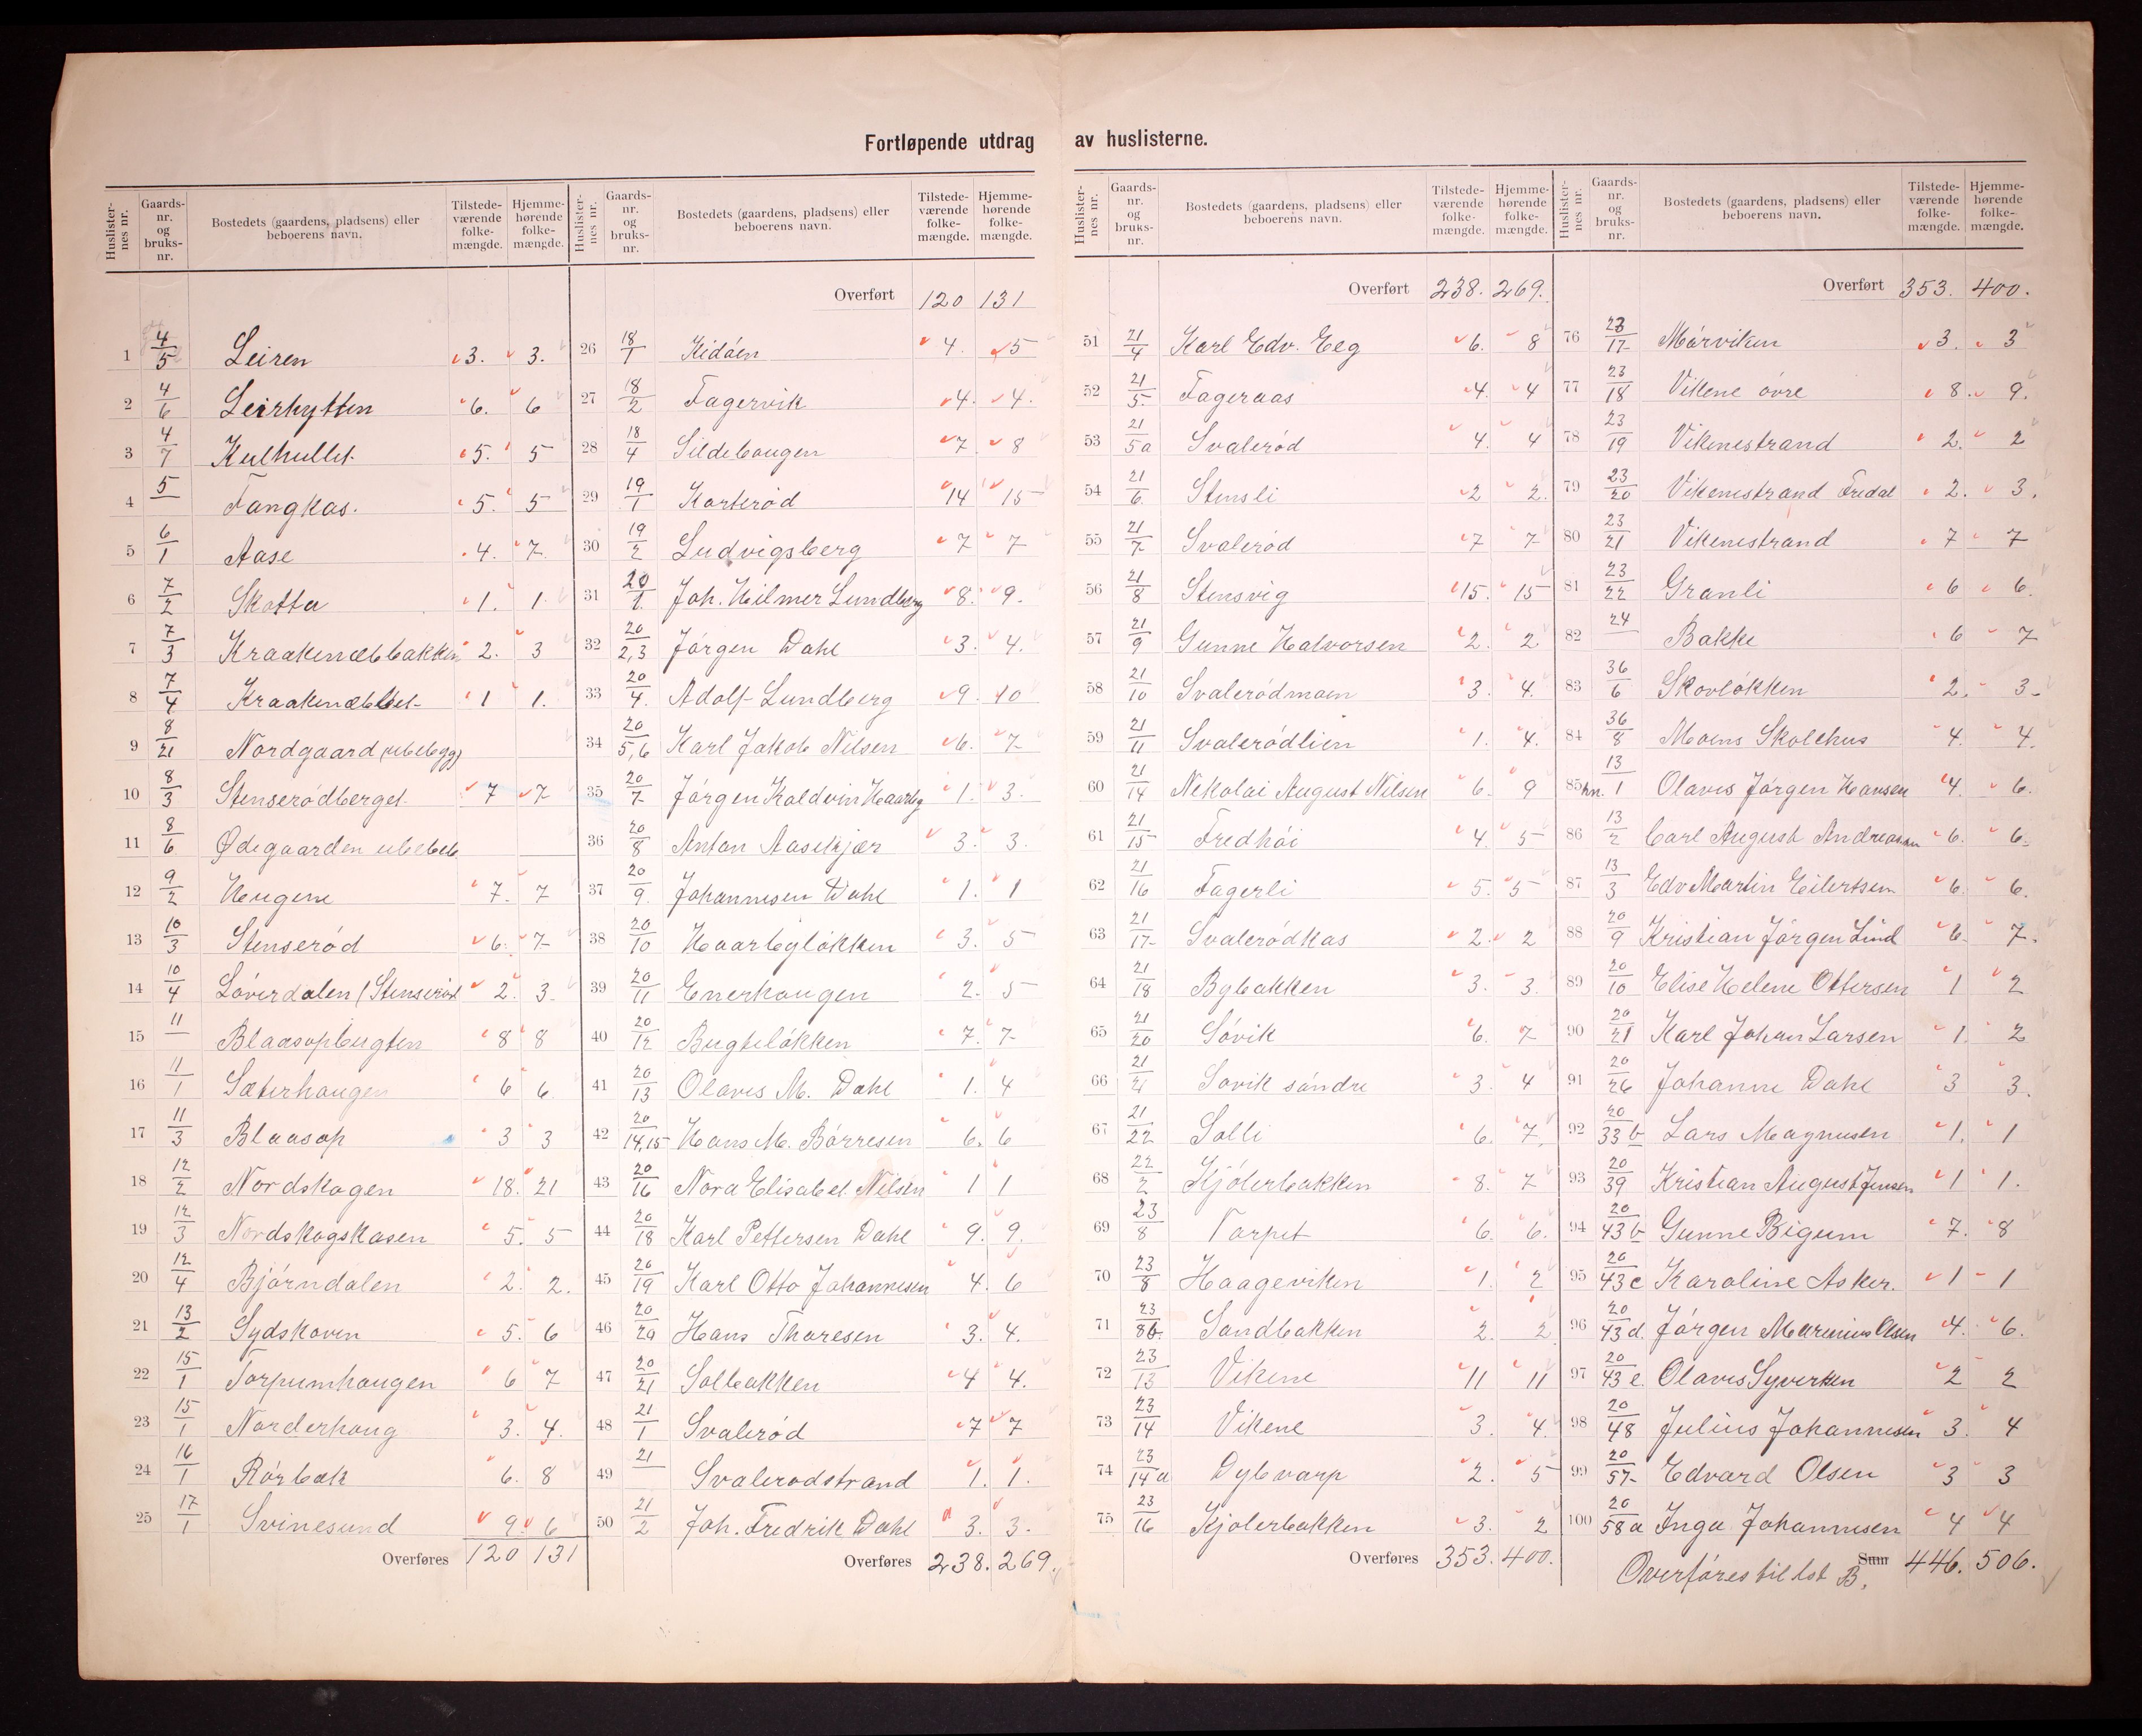 Fortløpende utdrag av huslisterne.
Huslister-nes nr. Gaards-nr. og bruks-nr. Bostedets (gaardens, pladsens) eller beboerens navn. Tilstede-værende folke-mængde. Hjemme-hørende folke-mængde.
1 4/5 Leiren 3. 3.
2 4/6 Leirhytten 6. 6
3 4/7 Kulhullet. 5. 5
4 5/ Fangkas. 5. 5
5 6/1 Aase 4. 7.
6 7/2 Skotta 1. 1.
7 7/3 Kraakenæbbakken 2. 3
8 7/4 Kraakenæbbet 1 1.
9 8/21 Nordgaard (ubebygg)
10 8/3 Stenserødberget. 7 7
11 8/6 Ødegaarden ubebeb
12 9/2 Haugene 7. 7
13 10/3 Stenserød 6. 7
14 10/4 Løverdalen (Stenserød 2. 3.
15 11/ Blaasopbugten 8 8
16 11/1 Sæterhaugen 6 6.
17 11/3 Blaasop 3 3
18 12/2 Nordskogen 18. 21
19 12/3 Nordskogskasen 5. 5
20 12/4 Bjørndalen 2. 2.
21 13/2 Sydskoven 5. 6
22 15/1 Torpumhaugen 6 7
23 15/1 Norderhaug 3. 4.
24 16/1 Rørbæk 6. 8
25 17/1 Svinesund 9. 6
Overføres 120 131
Huslister-nes nr. Gaards-nr. og bruks-nr. Bostedets (gaardens, pladsens) eller beboerens navn. Tilstede-værende folke-mængde. Hjemme-hørende folke-mængde.
Overført 120 131
26 18/1 Kidøen 4. 5
27 18/2 Fagervik 4. 4.
28 18/4 Sildebaugen 7. 8
29 19/1 Korterød 14 15
30 19/2 Ludvigsberg 7 7
31 20/1. Joh. Hilmer Lundberg 8. 9.
32 20/2,3 Jørgen Dahl 3. 4.
33 20/4. Adolf Lundberg 9. 10
34 20/5,6 Karl Jakob Nilsen 6. 7
35 20/7 Jørgen Kaldvin Haarby 1. 3.
36 20/8 Anton Aasekjær 3. 3.
37 20/9. Johannesen Dahl 1. 1
38 20/10 Haarbyløkken 3. 5
39 20/11 Enerhaugen 2. 5
40 20/12 Bugteløkken 7. 7
41 20/13 Olaves M. Dahl 1. 4
42 20/14,15 Hans M. Børresen 6. 6
43 20/16 Nora Elisabet Nilsen 1 1
44 20/18 Karl Pettersen Dahl 9. 9.
45 20/19 Karl Otto Johannesen 4. 6
46 20/29 Hans Thoresen 3. 4.
47 20/21 Solbakken 4 4.
48 21/1 Svalerød 7 7
49 21/ Svalerødstrand 1. 1.
50 21/2 Joh. Fredrik Dahl 3. 3.
Overføres 238. 269.
Huslister-nes nr. Gaards-nr. og bruks-nr. Bostedets (gaardens, pladsens) eller beboerens navn. Tilstede-værende folke-mængde. Hjemme-hørende folke-mængde.
Overført 238. 269.
51 21/4 Karl Edv. Eeg 6. 8
52 21/5. Fageraas 4. 4
53 21/5a Svalerød 4. 4
54 21/6. Stensli 2 2.
55 21/7 Svalerød 7 7
56 21/8 Stensvig 15. 15
57 21/9 Gunne Halvorsen 2. 2
58 21/10 Svalerødmoen 3. 4.
59 21/11 Svalerødlien 1. 4.
60 21/14 Nikolai August Nilsen 6. 9
61 21/15 Fredhøi 4. 5
62 21/16 Fagerli 5. 5
63 21/17 Svalerødkas 2. 2
64 21/18 Bybakken 3. 3.
65 21/20 Søvik 6. 7
66 21/21 Søvik søndre 3. 4
67 21/22 Solli 6. 7.
68 22/2 Kjølerbakken 8. 7
69 23/8 Torpet 6. 6.
70 23/8 Haageviken 1. 2
71 23/8b. Sandbakken 2. 2
72 23/13 Vikene 11 11
73 23/14 Vikene 3. 4.
74 23/14a Dybvarp 2. 5
75 23/16 Kjølerbakken 3. 2
Overføres 353. 400.
Huslister-nes nr. Gaards-nr. og bruks-nr. Bostedets (gaardens, pladsens) eller beboerens navn. Tilstede-værende folke-mængde. Hjemme-hørende folke-mængde.
Overført 353. 400.
76 23/17 Mørviken 3. 3
77 23/18 Vikene øvre 8. 9.
78 23/19 Vikenestrand 2. 2
79 23/20 Vikenestrand Fredal 2. 3.
80 23/21 Vikenestrand 7 7
81 23/22 Granli 6 6.
82 24/ Bakke 6 7
83 36/6 Skovløkken 2. 3
84 36/8 Moens Skolehus 4. 4.
85 13/1 Olaves Jørgen Hansen 4. 6.
86 13/2 Carl August Andreasen 6. 6.
87 13/3 Edv Martin Eilertsen 6. 6.
88 20/9 Kristian Jørgen Lind 6. 7.
89 20/10 Elise Helene Ottersen 1 2
90 20/21 Karl Johan Larsen 1. 2
91 20/26 Johanne Dahl 3 3.
92 20/33b Lars Magnusen 1. 1
93 20/39 Kristian August Jensen 1 1.
94 20/43b Gunne Bigum 7. 8
95 20/43c Karoline Asker. 1 1
96 20/43d. Jørgen Marinius Olsen 4. 6.
97 20/43e. Olaves Syversen 2 2
98 20/48 Julius Johannesen 3. 4
99 20/57 Edvard Olsen 3 3
100 20/58a Inga Johannesen 4 4
Overføres til lst B. Sum 446. 506.